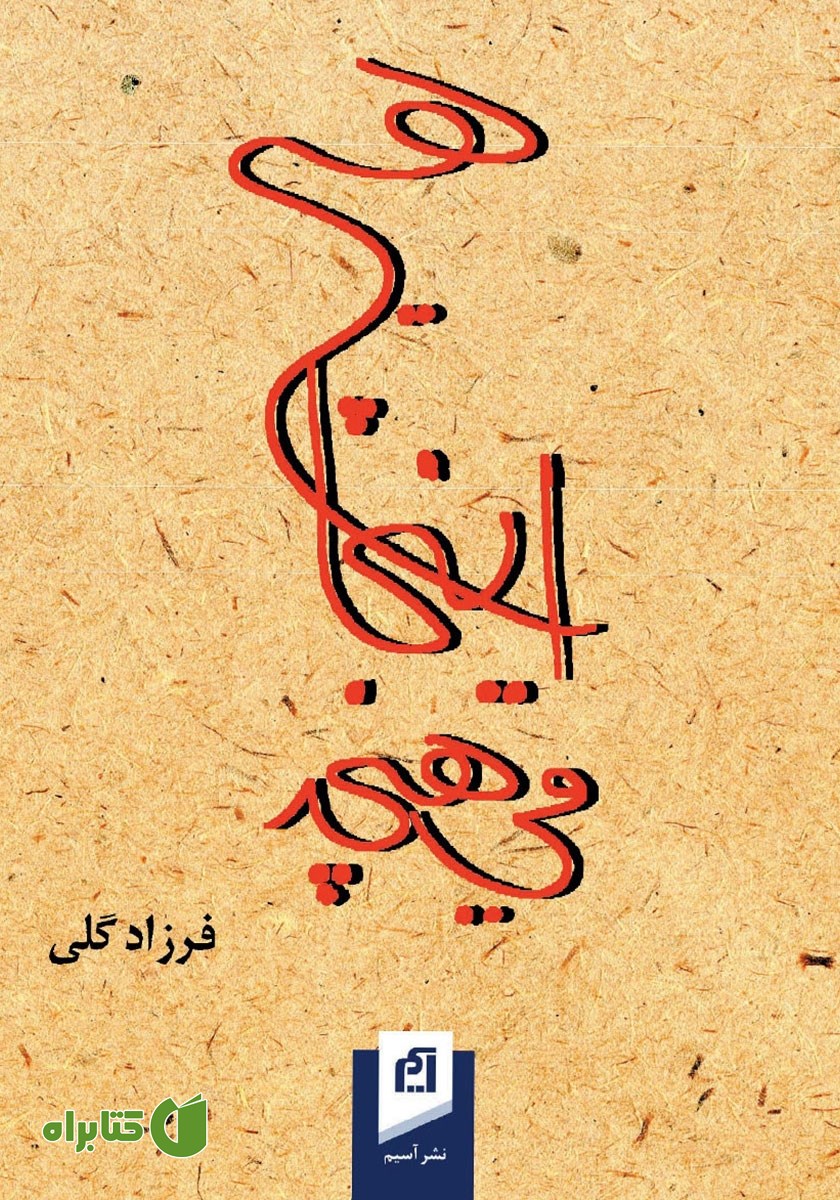 هیچ
اینجا
می هیچد
فرزاد گلی
آسیم
نشر آسیم
کتابراه